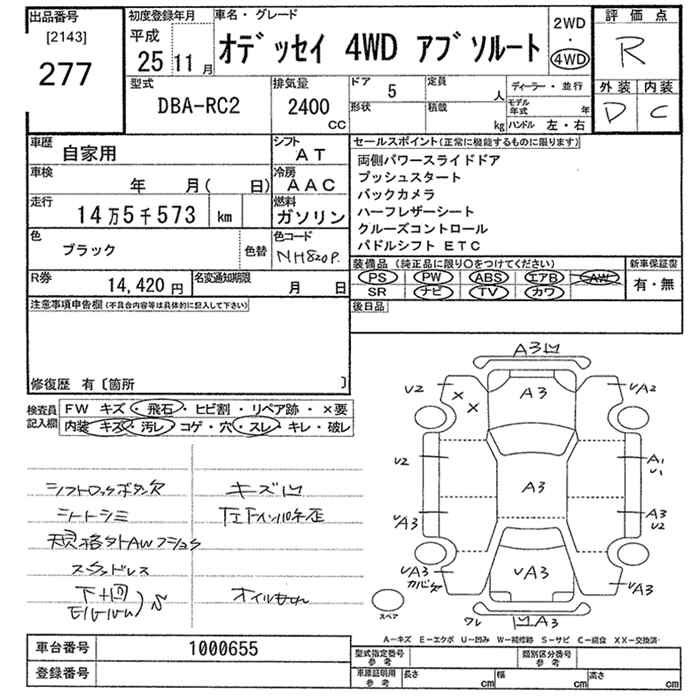 出品番号
[2143]
277
初度登録年月
平成
25 11月
車名・グレード
オデッセイ 4WD アブソルート
2WD
・
4WD
評価点
R
外装 内装
D C
型式
DBA-RC2
排気量
2400
CC
ドア 5
形状
定員 人
積載 kg
ディーラー・並行
モデル年式 年
ハンドル 左・右
車歴
自家用
シフト
AT
車検
年 月( 日)
冷房
AAC
走行
14万5千573 km
燃料
ガソリン
色
ブラック
色替
色コード
NH820P.
R券
14,420円
名変通知期限
月 日
セールスポイント(正常に機能するものに限ります)
両側パワースライドドア
プッシュスタート
バックカメラ
ハーフレザーシート
クルーズコントロール
パドルシフト ETC
装備品(純正品に限り○をつけてください)
PS PW ABS エアB AW
SR ナビ TV カワ
新車保証書
有・無
後日品
注意事項申告欄(不具合内容等は具体的に記入して下さい)
修復歴 有〔箇所 〕
検査員記入欄
FW キズ・飛石・ヒビ割・リペア跡・×要
内装 キズ・汚レ・コゲ・穴・スレ・キレ・破レ
シフトロックボタン欠
シートシミ
規格外AWフショク
スタッドレス
キズ凹
オイルもれ
A3凹
U2
A3
UA2
U2
A3
A1
U1
UA3
A3
U2
UA3
カバケ
UA3
UA3
スペア
ワレ
凹A3
A−キズ E−エクボ U−凹み W−補修跡 S−サビ C−腐食 XX−交換済
車台番号
1000655
登録番号
型式指定番号
参考
類別区分番号
参考
車庫証明用
参考
長さ cm
幅 cm
高さ cm